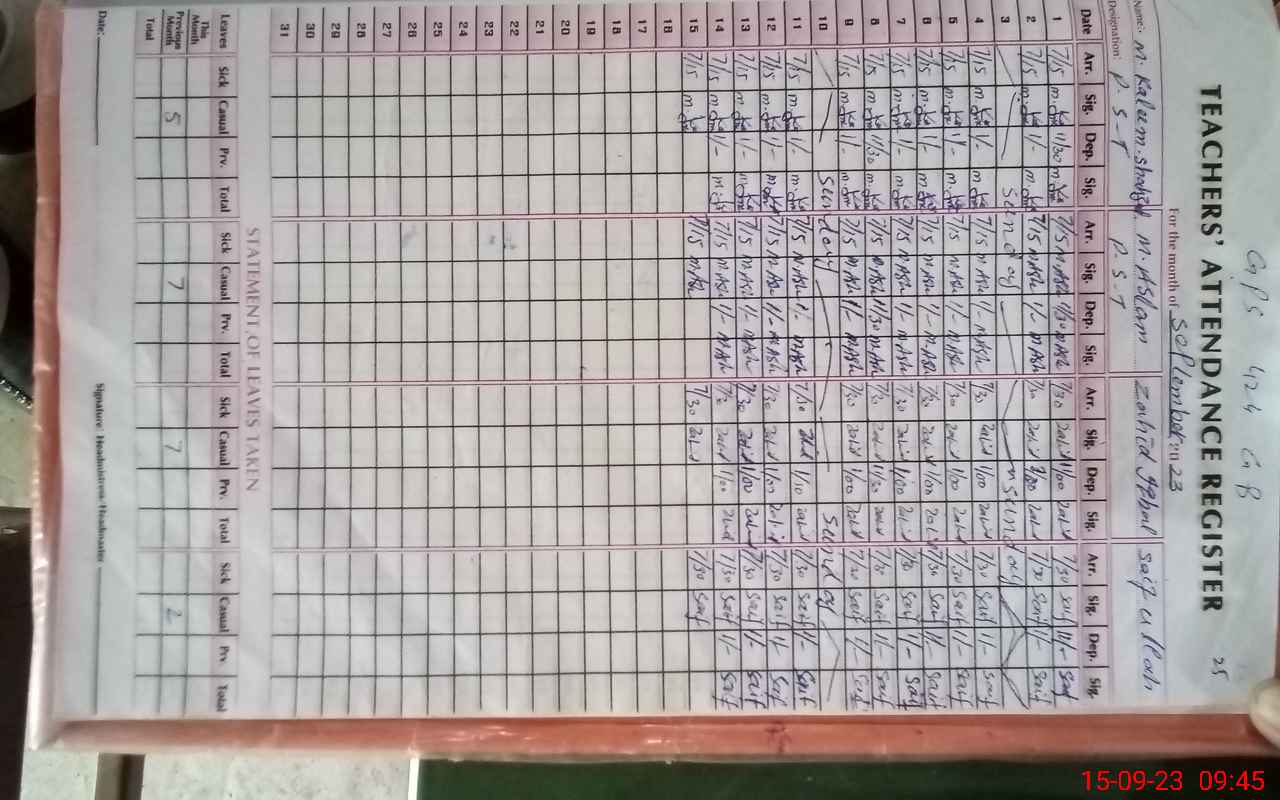 GPS 424 GB
25
TEACHERS' ATTENDANCE REGISTER
For the month of September 2023
Name:- M. Kaleem. Shahzad M. Aslam Zahid Iqbal Saif ullah
Designation: P. S-T P. S-T
Date Arr. Sig. Dep. Sig. Arr. Sig. Dep. Sig. Arr. Sig. Dep. Sig. Arr. Sig. Dep. Sig.
1 7/15 11/30 7/15 11/30 7/30 11/00 Zahid 7/30 Saif 11/- Saif
2 7/15 1/- 7/15 1/- 7/30 Zahid 7/30 Saif 1/- Saif
3 Sunday Sunday
4 7/15 1/- 7/15 1/- 7/30 Zahid 1/00 Zahid 7/30 Saif 1/- Saif
5 7/15 1/- 7/15 1/- 7/30 Zahid 1/00 Zahid 7/30 Saif 1/- Saif
6 7/15 1/- 7/15 1/- 7/30 Zahid 1/00 Zahid 7/30 Saif 1/- Saif
7 7/15 1/- 7/15 1/- 7/30 Zahid 1/00 Zahid 7/30 Saif 1/- Saif
8 7/15 11/30 7/15 11/30 7/30 Zahid 11/30 Zahid 7/30 Saif 11/- Saif
9 7/15 1/- 7/15 1/- 7/30 Zahid 1/00 Zahid 7/30 Saif 1/- Saif
10 Sunday Sunday
11 7/15 1/- 7/15 1/- 7/30 1/10 Zahid 7/30 Saif 1/- Saif
12 7/15 1/- 7/15 1/- 7/30 Zahid 1/00 Zahid 7/30 Saif 1/- Saif
13 7/15 1/- 7/15 1/- 7/30 Zahid 1/00 Zahid 7/30 Saif 1/- Saif
14 7/15 1/- 7/15 1/- 7/30 Zahid 1/00 Zahid 7/30 Saif 1/- Saif
15 7/15 7/15 7/30 Zahid 7/30 Saif
16
17
18
19
20
21
22
23
24
25
26
27
28
29
30
31
STATEMENT OF LEAVES TAKEN
Leaves Sick Casual Prv. Total Sick Casual Prv. Total Sick Casual Prv. Total Sick Casual Prv. Total
This Month
Previous Month 5 7 7 2
Total
Date: Signature: Headmistress/Headmaster
15-09-23 09:45